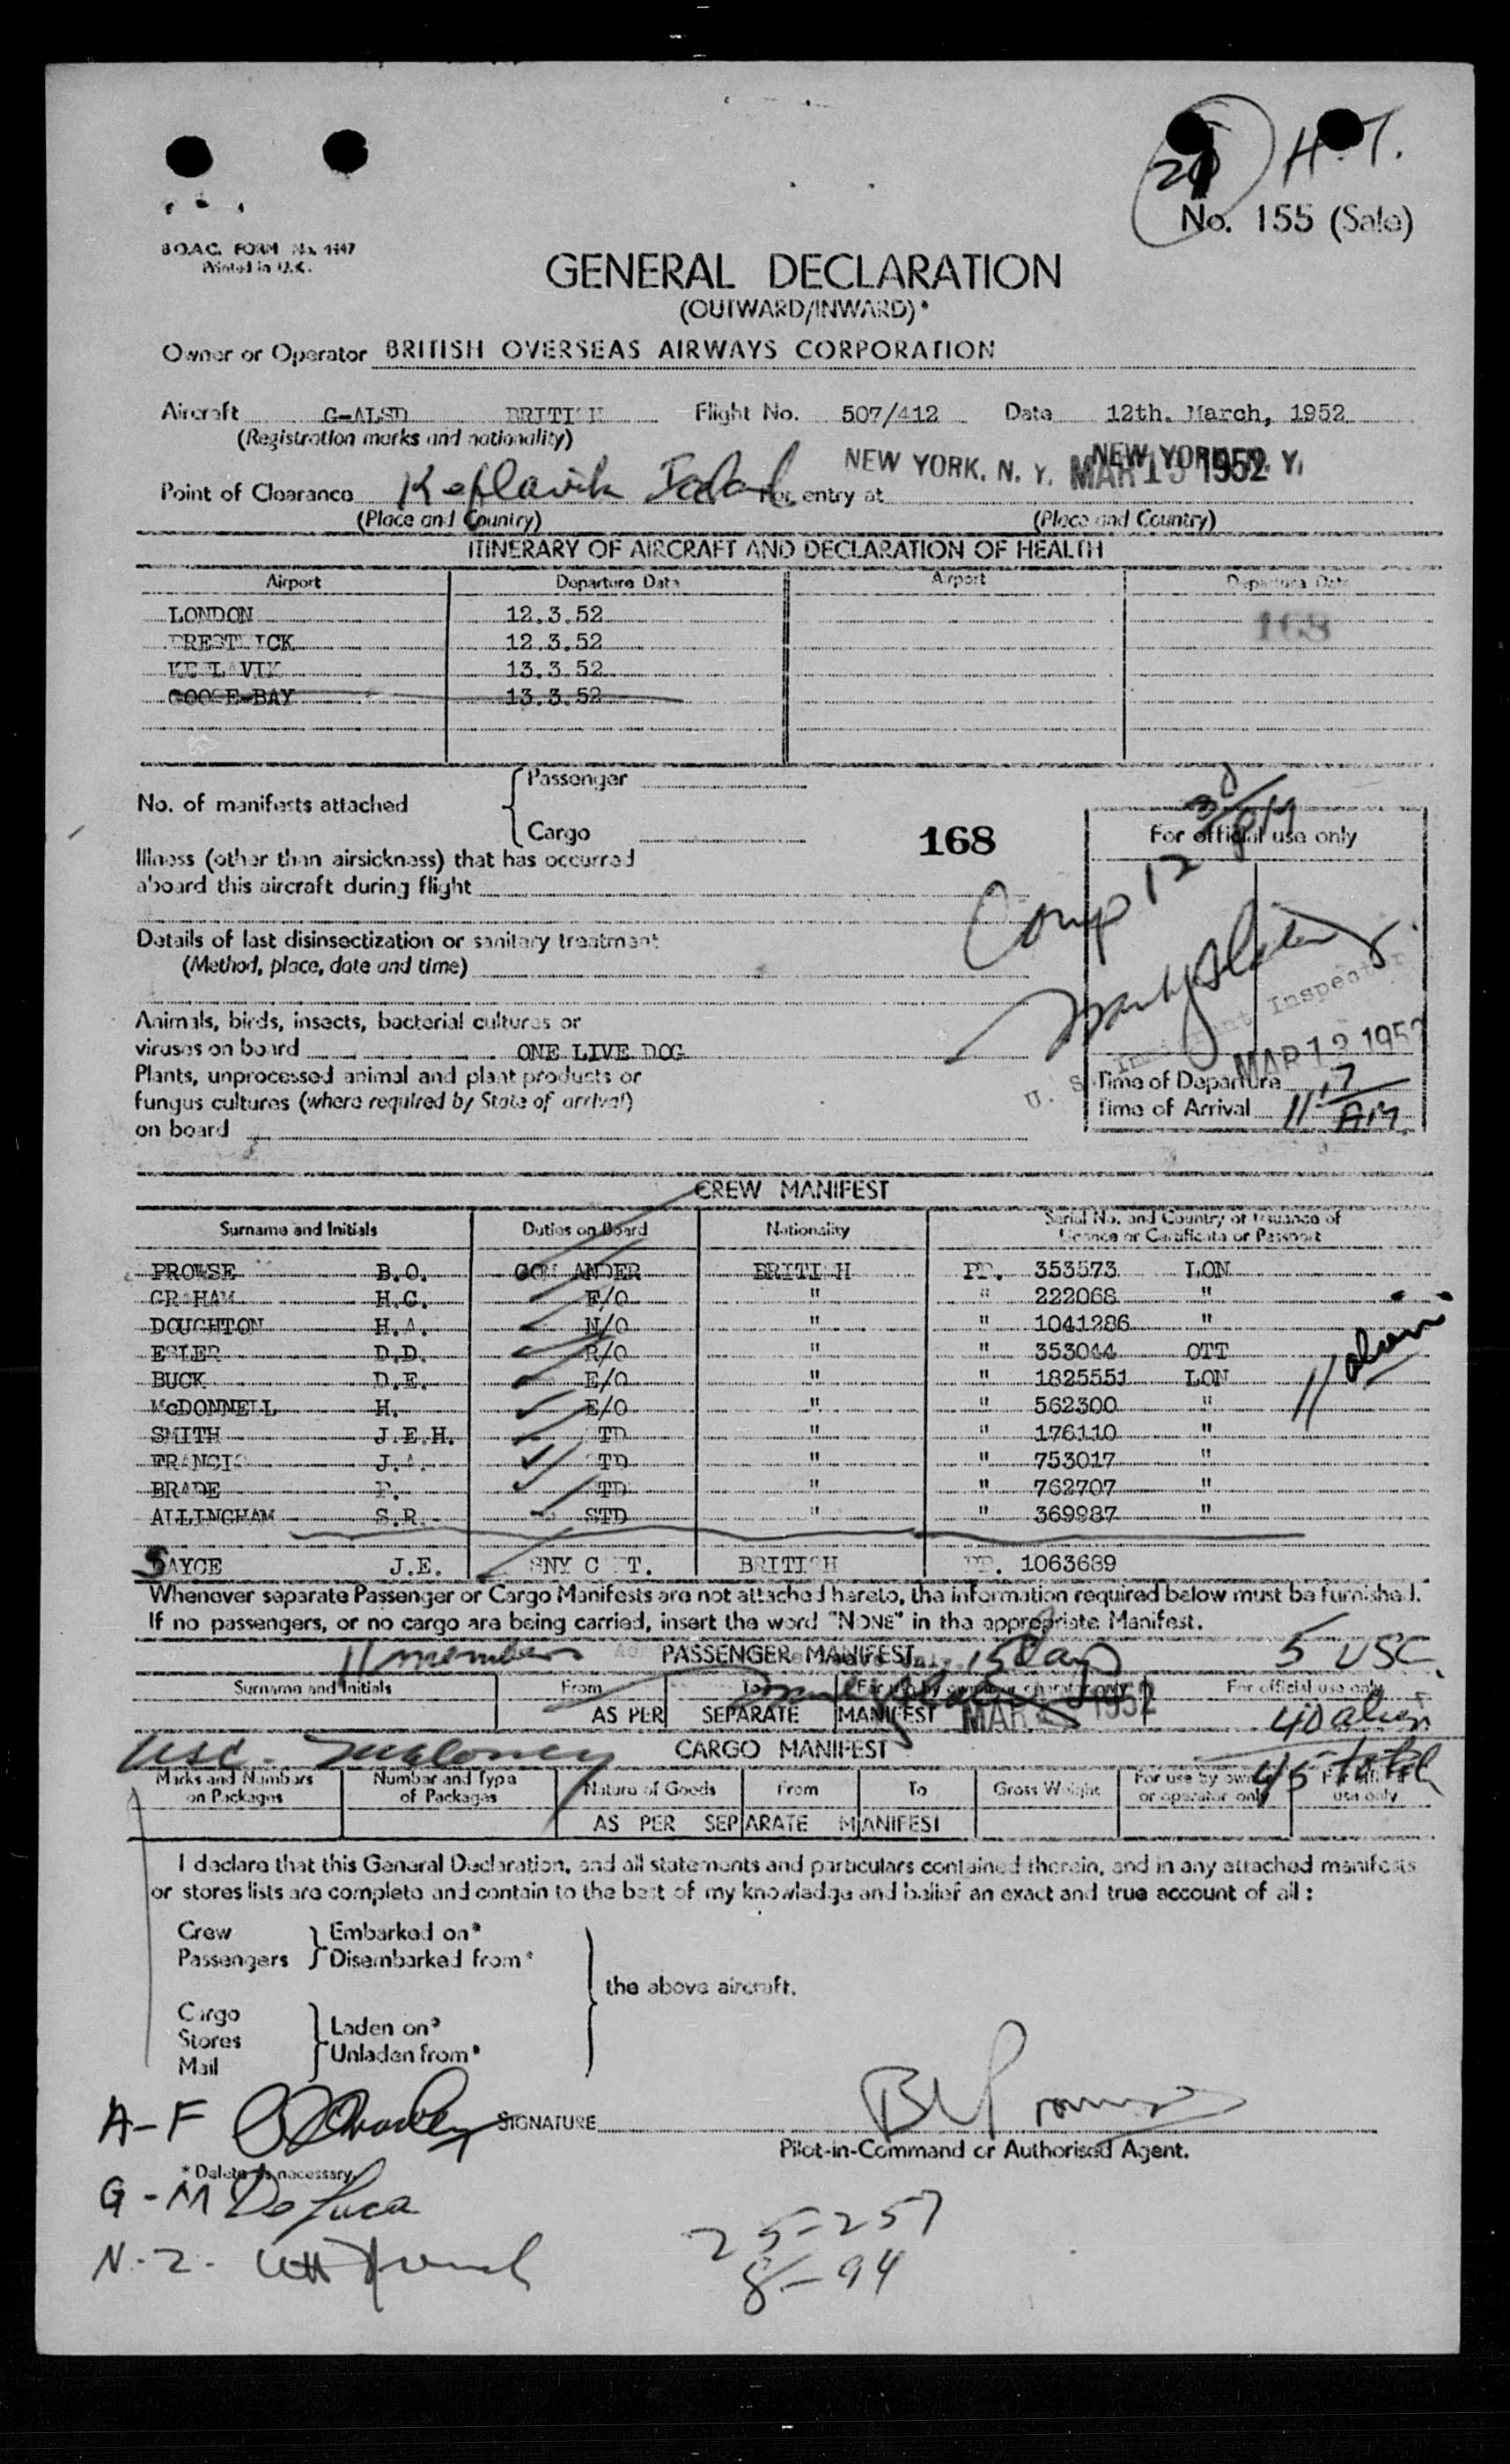 20 H.T.
No. 155 (Sale)
B.O.A.C. FORM No. 1447
Printed in U.K.
GENERAL DECLARATION
(OUTWARD/INWARD)*
Owner or Operator BRITISH OVERSEAS AIRWAYS CORPORATION
Aircraft G-ALSD BRITISH Flight No. 507/412 Date 12th. March, 1952
(Registration marks and nationality)
NEW YORK, N. Y. MAR 13 1952 NEW YORK, N. Y.
Point of Clearance Keflavik For entry at
(Place and Country) (Place and Country)
ITINERARY OF AIRCRAFT AND DECLARATION OF HEALTH
Airport Departure Date Airport Departure Date
LONDON 12.3.52 168
PRESTWICK 12.3.52
KEFLAVIK 13.3.52
GOOSE-BAY 13.3.52
Passenger
No. of manifests attached
Cargo 168 For official use only
Illness (other than airsickness) that has occurred
aboard this aircraft during flight
Comp 12 30 PM
Details of last disinsectization or sanitary treatment
(Method, place, date and time)
Animals, birds, insects, bacterial cultures or
viruses on board ONE LIVE DOG
U. S. Immigrant Inspector
MAR 13 1952
Plants, unprocessed animal and plant products or
fungus cultures (where required by State of arrival)
on board
Time of Departure
Time of Arrival 11 17 AM.
CREW MANIFEST
Surname and Initials Duties on Board Nationality Serial No. and Country of Issuance of
Licence or Certificate or Passport
PROWSE B.O. COMMANDER BRITISH PP. 353573 LON
GRAHAM H.G. F/O " " 222068 "
DOUGHTON H.A. N/O " " 1041286 "
ESLER D.D. R/O " " 353044 OTT
BUCK D.E. E/O " " 1825551 LON
McDONNELL H. E/O " " 562300 "
SMITH J.E.H. STD " " 176110 "
FRANCIS J.A. STD " " 753017 "
BRADE P. STD " " 762707 "
ALLINGHAM S.R. STD " " 369987 "
11 aliens
SAYCE J.E. SNY C PT. BRITISH PP. 1063689
Whenever separate Passenger or Cargo Manifests are not attached hereto, the information required below must be furnished.
If no passengers, or no cargo are being carried, insert the word "NONE" in the appropriate Manifest.
11 members PASSENGER MANIFEST 15 days 5 USC
Surname and Initials From To For use by owner or operator only For official use only
AS PER SEPARATE MANIFEST MAR 1952 40 alien
USC - CARGO MANIFEST 45 total
Marks and Numbers on Packages Number and Type of Packages Nature of Goods From To Gross Weight For use by owner or operator only For official use only
AS PER SEPARATE MANIFEST
I declare that this General Declaration, and all statements and particulars contained therein, and in any attached manifests
or stores lists are complete and contain to the best of my knowledge and belief an exact and true account of all :
Crew Embarked on*
Passengers Disembarked from*
the above aircraft.
Cargo
Stores Laden on*
Mail Unladen from*
A-F SIGNATURE
Pilot-in-Command or Authorised Agent.
* Delete as necessary.
G - M DeLuca
N - Z -
25-257
8-94